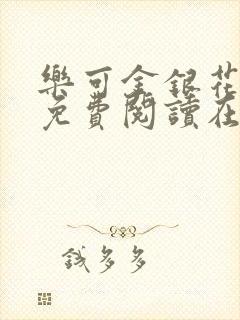 樂可金銀花
免費閱讀在
錢多多